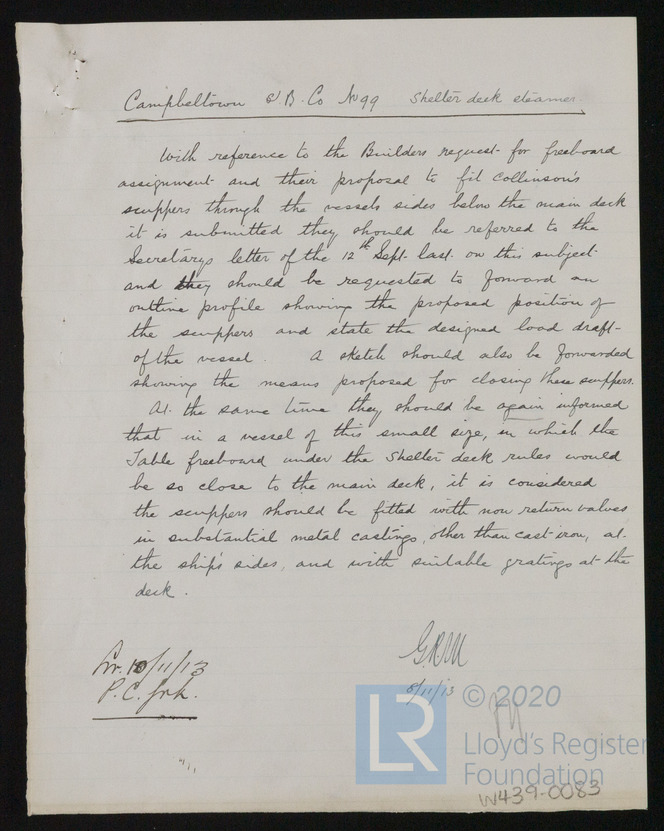 Campbeltown S.B. Co No 99 Shelter deck steamer.
With reference to the Builders request for freeboard
assignment and their proposal to fit Collinson's
scuppers through the vessels sides below the main deck
it is submitted they should be referred to the
Secretarys letter of the 12th Sept. last. on this subject.
and they should be requested to forward an
outline profile showing the proposed position of
the scuppers and state the designed load draft
of the vessel. A sketch should also be forwarded
showing the means proposed for closing these scuppers.
At the same time they should be again informed
that in a vessel of this small size, in which the
Table freeboard under the Shelter deck rules would
be so close to the main deck, it is considered
the scuppers should be fitted with non return valves
in substantial metal castings, other than cast-iron, at
the ship's sides, and with suitable gratings at the
deck.
10/11/13
P.C.
8/11/13
LR © 2020
Lloyd's Register
Foundation
W439-0083